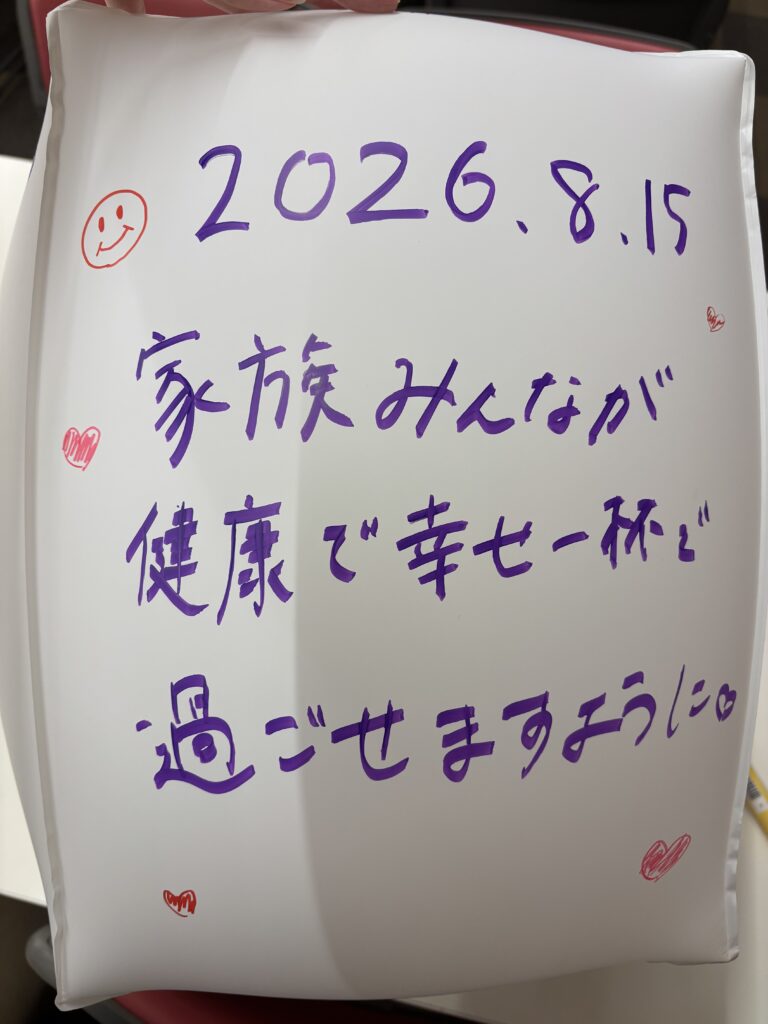 2026.8.15
家族みんなが
健康で幸せ一杯で
過ごせますように♡